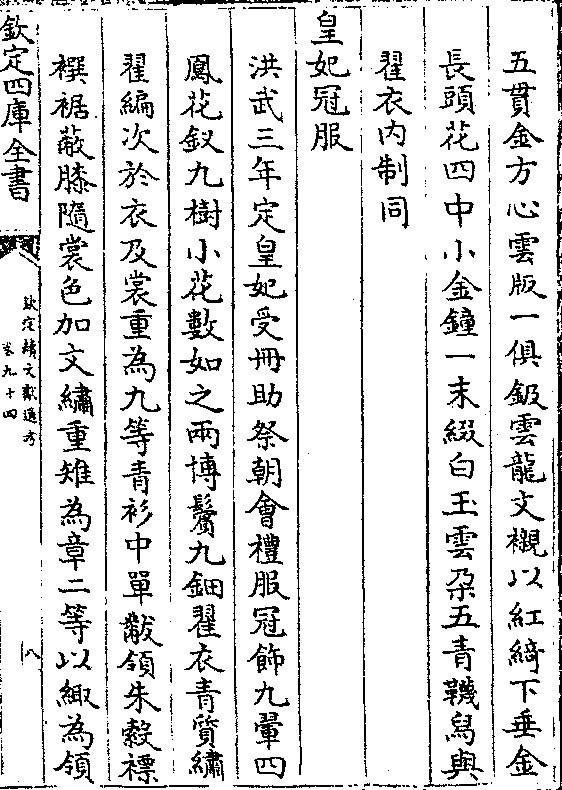 五貫金方心雲版一俱鈒雲龍文襯以紅綺下垂金
長頭花四中小金鐘一末綴白玉雲朶五青韈舄與
翟衣内制同
皇妃冠服
洪武三年定皇妃受冊助祭朝會禮服冠飾九翬四
鳳花釵九樹小花數如之兩博鬢九鈿翟衣青質繡
翟編次於衣及裳重為九等青衫中單黻領朱縠褾
襈裾蔽膝隨裳色加文繡重雉為章二等以緅為領
欽定四庫全書
欽定續文獻通考
卷九十四
八